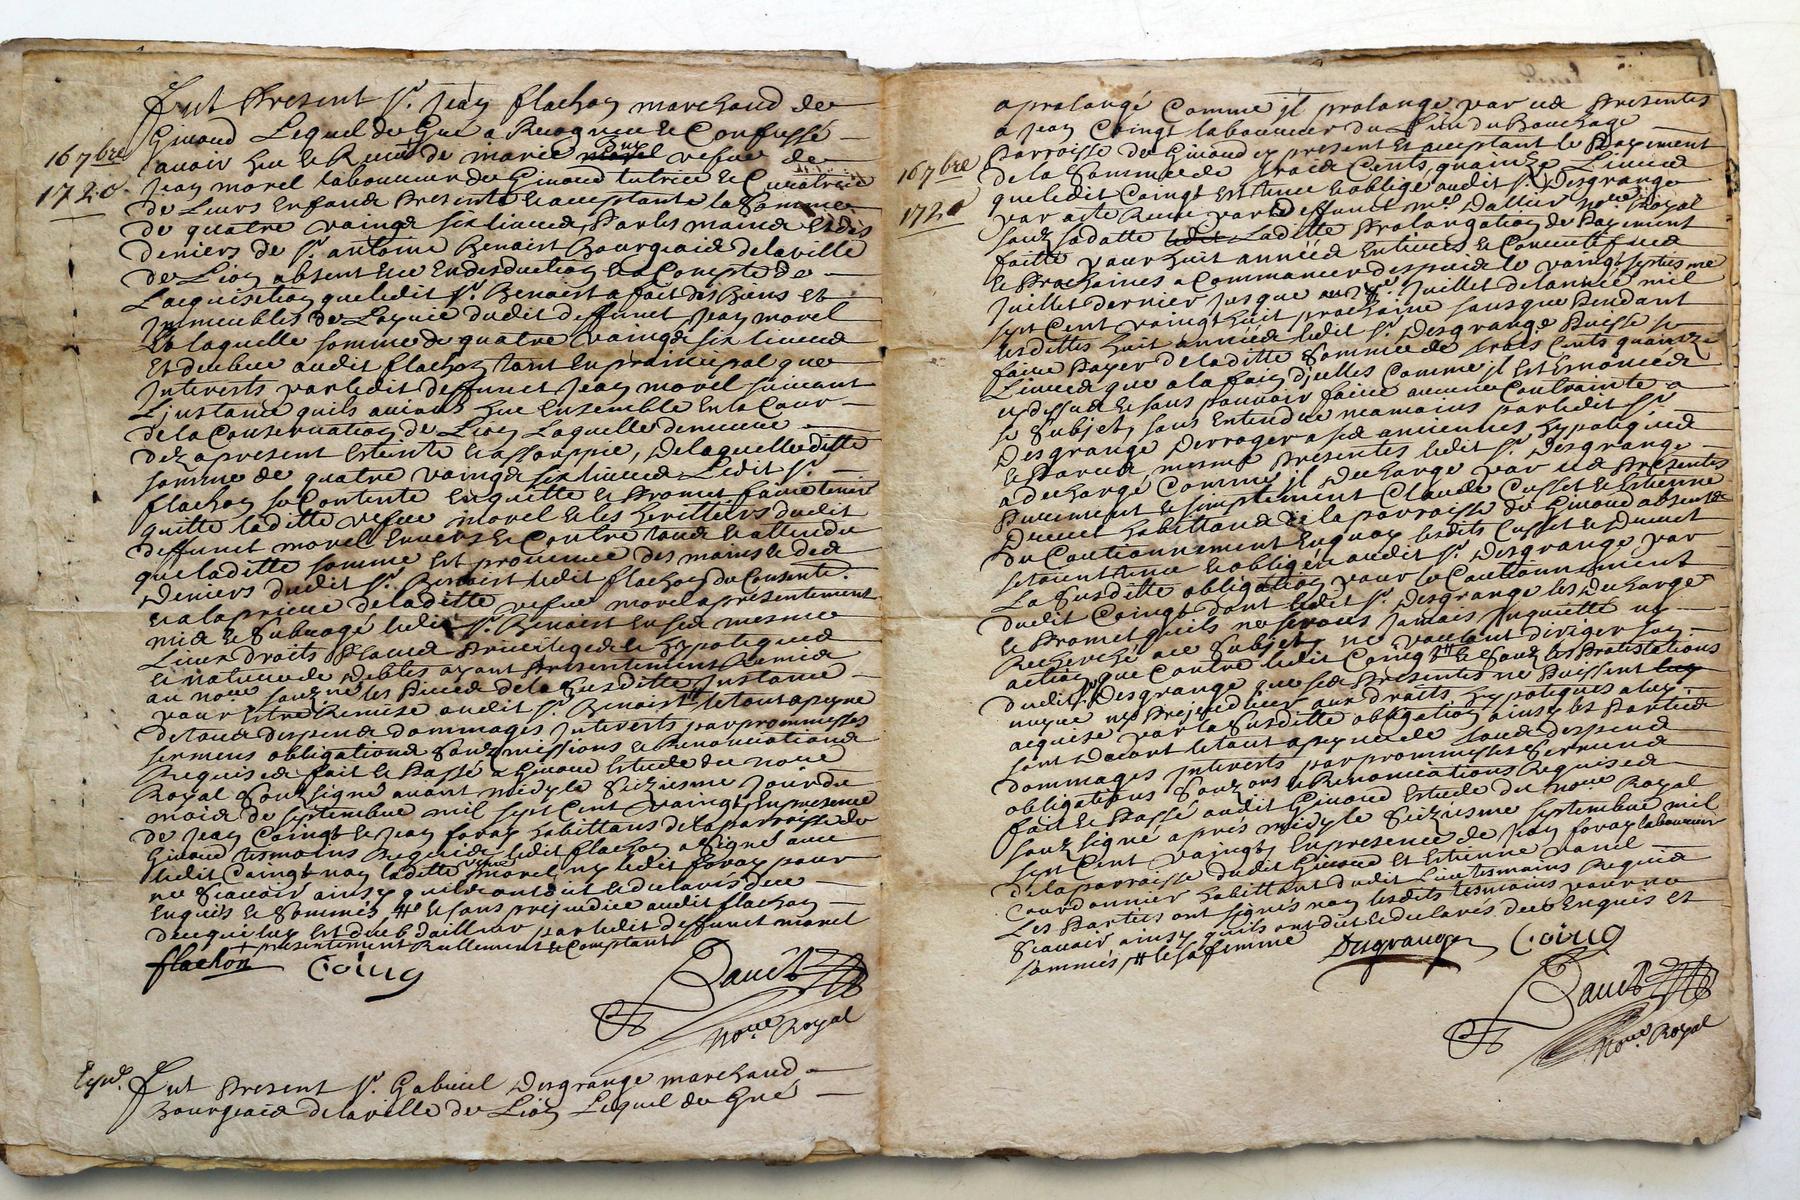 16 7bre
1720
fut Present Sr. Jean flachon marchand de
Givaud Lequel de Gré a Recogneu et Confessé
avoir heu et Receu de marie vefve de
Jean morel laboureur de Givaud tutrice et Curatrice
de Leurs Enfans Presente et acceptante la Somme
de quatre vaingt six livres, Par les mains et des
deniers de Sr. antoine Benoist Bourgeois de la ville
de Lion absent et en desduction et a Compte de
Lacquisition que ledit Sr. Benoist a fait des Biens et
Immeubles de dudit deffunct Jean morel
Et laquelle somme de quatre vaingt six livres
Est deubue audit flachon tant En principal que
Interets par ledit deffunct Jean morel suivant
L'instance quils avoient heue Ensemble En la Cour
de la Conservation de Lion Laquelle demeure
dez a present Esteinte et assouppie, de laquelle ditte
somme de quatre vaingt six livres Ledit Sr.
flachon se Contente En quitte et Promet faire tenir
quitte laditte vefve morel et les heritiers dudit
deffunct morel Envers et Contre tous et attendu
que laditte somme est provenue des mains et des
deniers dudit Sr. Benoist ledit flachon du Consente.
et a la priere de laditte vefve morel a presentement
mis et Subrogé ledit Sr. Benoist En ses mesme
Lieux droits Places Privileges et hypoteques
et nature de debtes ayant Presentement Remis
au nore. souzné. les Pieces de la Susditte Instance
pour Estre Remise audit Sr. Benoist le tout a peyne
de tous despens dommages Interets par prommesses
sermens obligations Souzmissions et Renonciations
Requises fait et Passé a Givaud Estude du nore
Royal Souzsigné avant midy le Seizieme Jour du
mois de septembre mil sept Cent vaingt En presence
de Jean Coingt et Jean foray habittans de la parroisse de
Givaud tesmoins Requis ledit flachon a Signé avec
ledit Coingt non laditte morel ny ledit foray pour
ne Scavoir ainsy quils ont dit et declarés deue
Enquis et Sommés et sans prejudice audit flachon
de ce qui luy est deub d'ailleur par ledit deffunct morel
presentement Reellement et Comptant
flachon Coing
Dauit
nore Royal
Expé. fut Present Sr. Gabriel Desgrange marchand
Bourgeois de la ville de Lion Lequel de Gré
16 7bre
1720
a prolongé Comme il prolonge par ces Presentes
a Jean Coingt laboureur du Lieu du Bouchage
Parroisse de Givaud cy present et acceptant le Payement
de la Somme de trois Cents quainze Livres
que ledit Coingt est tenu et obligé audit Sr. Desgrange
par acte Receu par deffunct me Dallier nore Royal
souz sa datte Laditte Prolongation de Payement
faitte pour huit années Entieres et Consecutives
et Prochaines a Commancer despuis le vaingt septieme
Juillet dernier Jusque Juillet de lannée mil
sept Cent vaingt huit prochaine sans que Pendant
lesdittes huit années ledit Sr. Desgrange Puisse se
faire Payer de laditte Somme de trois Cents quainze
Livres que a la fin d'jcelles Comme il est Enonce
cy dessus et sans pouvoir faire aucune Contrainte a
se Subjet, sans Entendre neamoins par ledit Sr.
Desgrange Derroger a ses anciennes hypoteques
et Par ces mesme Presentes ledit Sr. Desgrange
a decharge Comme il decharge par ces Presentes
Purement et simplement Claude Cusset et Estienne
habittans de la parroisse de Givaud absent
du Cautionnement Enquoy lesdits Cusset et
setoient tenu et obligés audit Sr. Desgrange par
La Susditte obligation pour le Cautionnement
dudit Coingt dont ledit Sr. Desgrange les decharge
et Promet quils ne seront Jamais Inquietté ny
Recherché a ce Subjet, ne voulant diriger son
action que Contre ledit Coingt et Souz les Protestations
dudit Sr. Desgrange que ses Presentes ne Puissent
nuyre ny Prejudicier aux droits hypoteques a luy
acquise par la Susditte obligation ainsy les Parties
sont d'acort le tout a peyne de tous despens
dommages interets par prommesses Sermens
obligations Souzons et Renonciations Requises
fait et Passé audit Givaud Estude du nore Royal
souzsigné aprés midy le Seizieme septembre mil
sept Cent vaingt, En presence de Jean foray laboureur
de la parroisse dudit Givaud Et Estienne
Courdonnier habittant dudit Lieu tesmoins Requis
Les Parties ont signés non lesdits tesmoins pour ne
Scavoir ainsy quils ont dit et declarés deue Enquis et
sommés et sa femme
Desgrange Coing
Dauit
nore. Royal